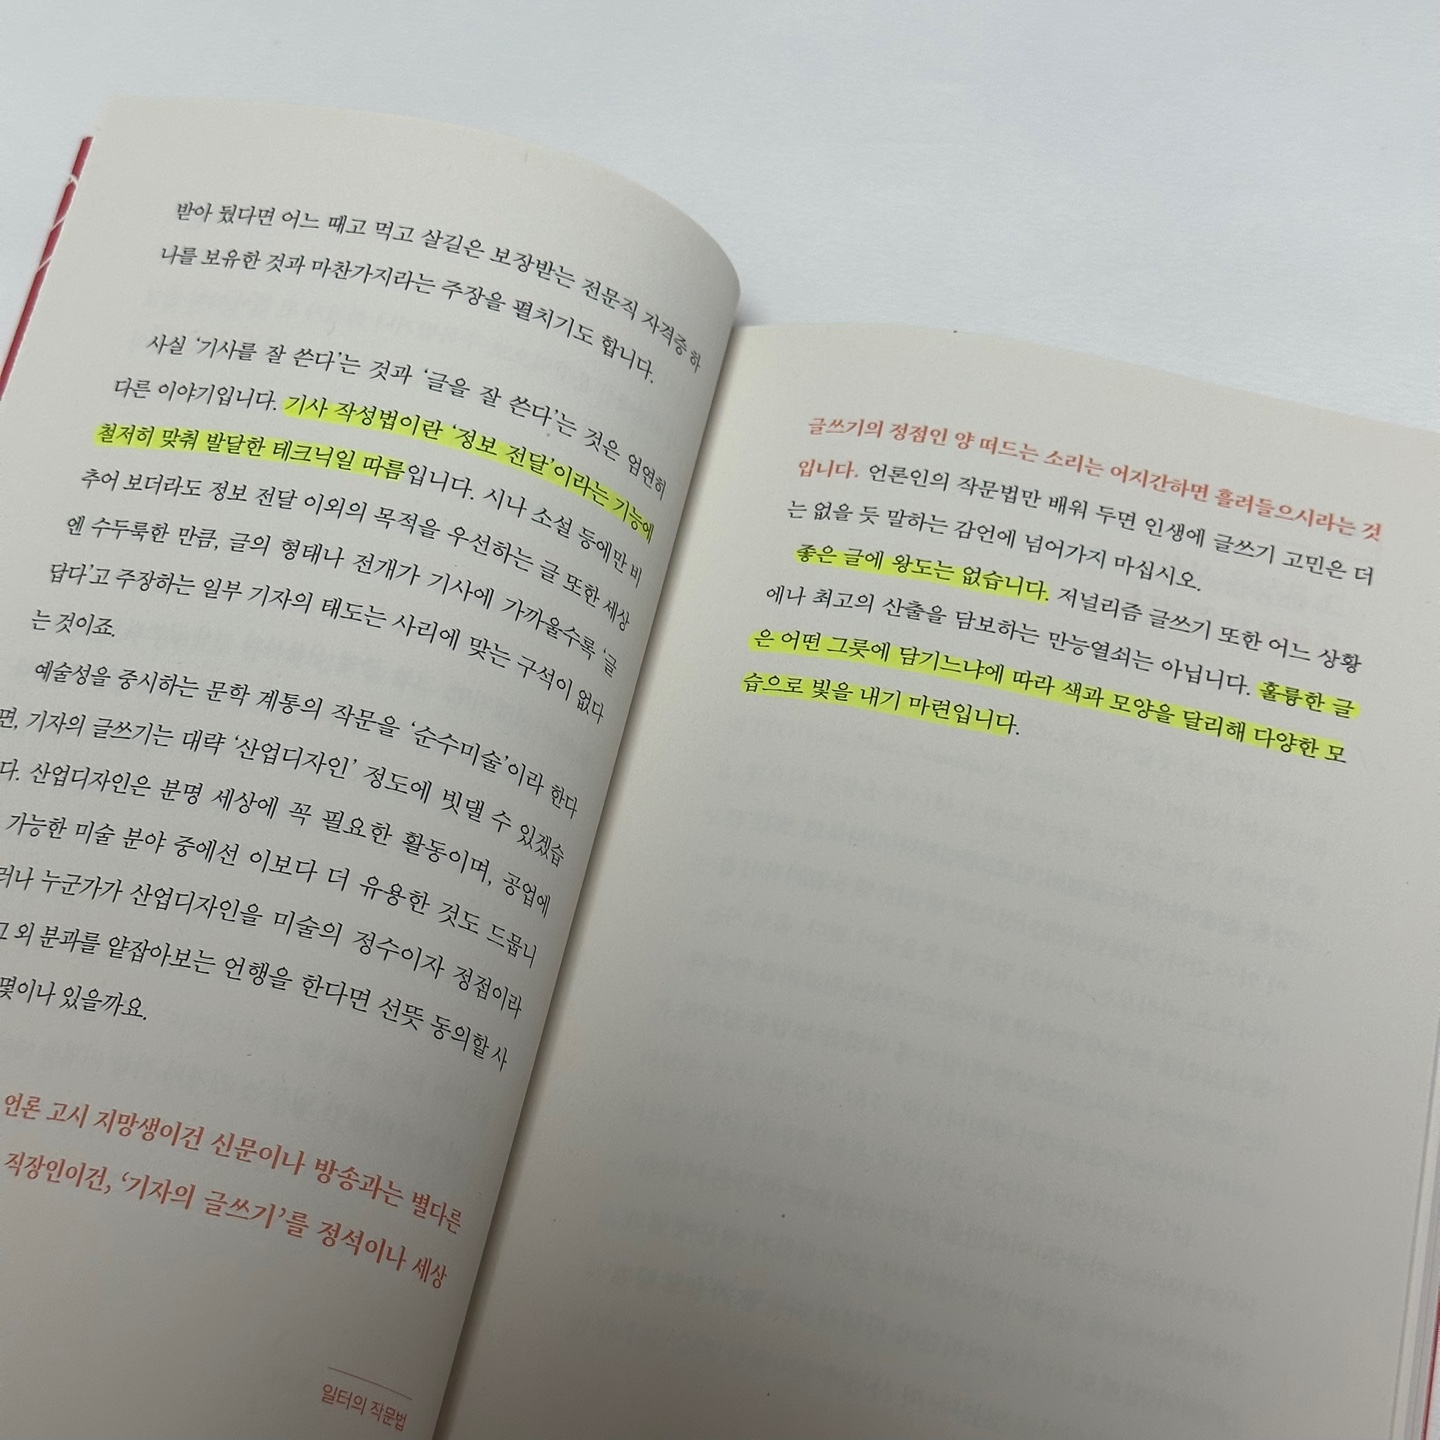 받아 뒀다면 어느 때고 먹고 살길은 보장받는 전문직 자격증 하
나를 보유한 것과 마찬가지라는 주장을 펼치기도 합니다.
사실 ‘기사를 잘 쓴다’는 것과 ‘글을 잘 쓴다’는 것은 엄연히
다른 이야기입니다. 기사 작성법이란 ‘정보 전달’이라는 기능에
철저히 맞춰 발달한 테크닉일 따름입니다. 시나 소설 등에만 비
추어 보더라도 정보 전달 이외의 목적을 우선하는 글 또한 세상
엔 수두룩한 만큼, 글의 형태나 전개가 기사에 가까울수록 ‘글
답다’고 주장하는 일부 기자의 태도는 사리에 맞는 구석이 없다
는 것이죠.
예술성을 중시하는 문학 계통의 작문을 ‘순수미술’이라 한다
면, 기자의 글쓰기는 대략 ‘산업디자인’ 정도에 빗댈 수 있겠습
다. 산업디자인은 분명 세상에 꼭 필요한 활동이며, 공업에
가능한 미술 분야 중에선 이보다 더 유용한 것도 드뭅니
러나 누군가가 산업디자인을 미술의 정수이자 정점이라
그 외 분과를 얕잡아보는 언행을 한다면 선뜻 동의할 사
몇이나 있을까요.
언론 고시 지망생이건 신문이나 방송과는 별다른
직장인이건, ‘기자의 글쓰기’를 정석이나 세상
일터의 작문법
글쓰기의 정점인 양 떠드는 소리는 어지간하면 흘려들으시라는 것
입니다. 언론인의 작문법만 배워 두면 인생에 글쓰기 고민은 더
는 없을 듯 말하는 감언에 넘어가지 마십시오.
좋은 글에 왕도는 없습니다. 저널리즘 글쓰기 또한 어느 상황
에나 최고의 산출을 담보하는 만능열쇠는 아닙니다. 훌륭한 글
은 어떤 그릇에 담기느냐에 따라 색과 모양을 달리해 다양한 모
습으로 빛을 내기 마련입니다.